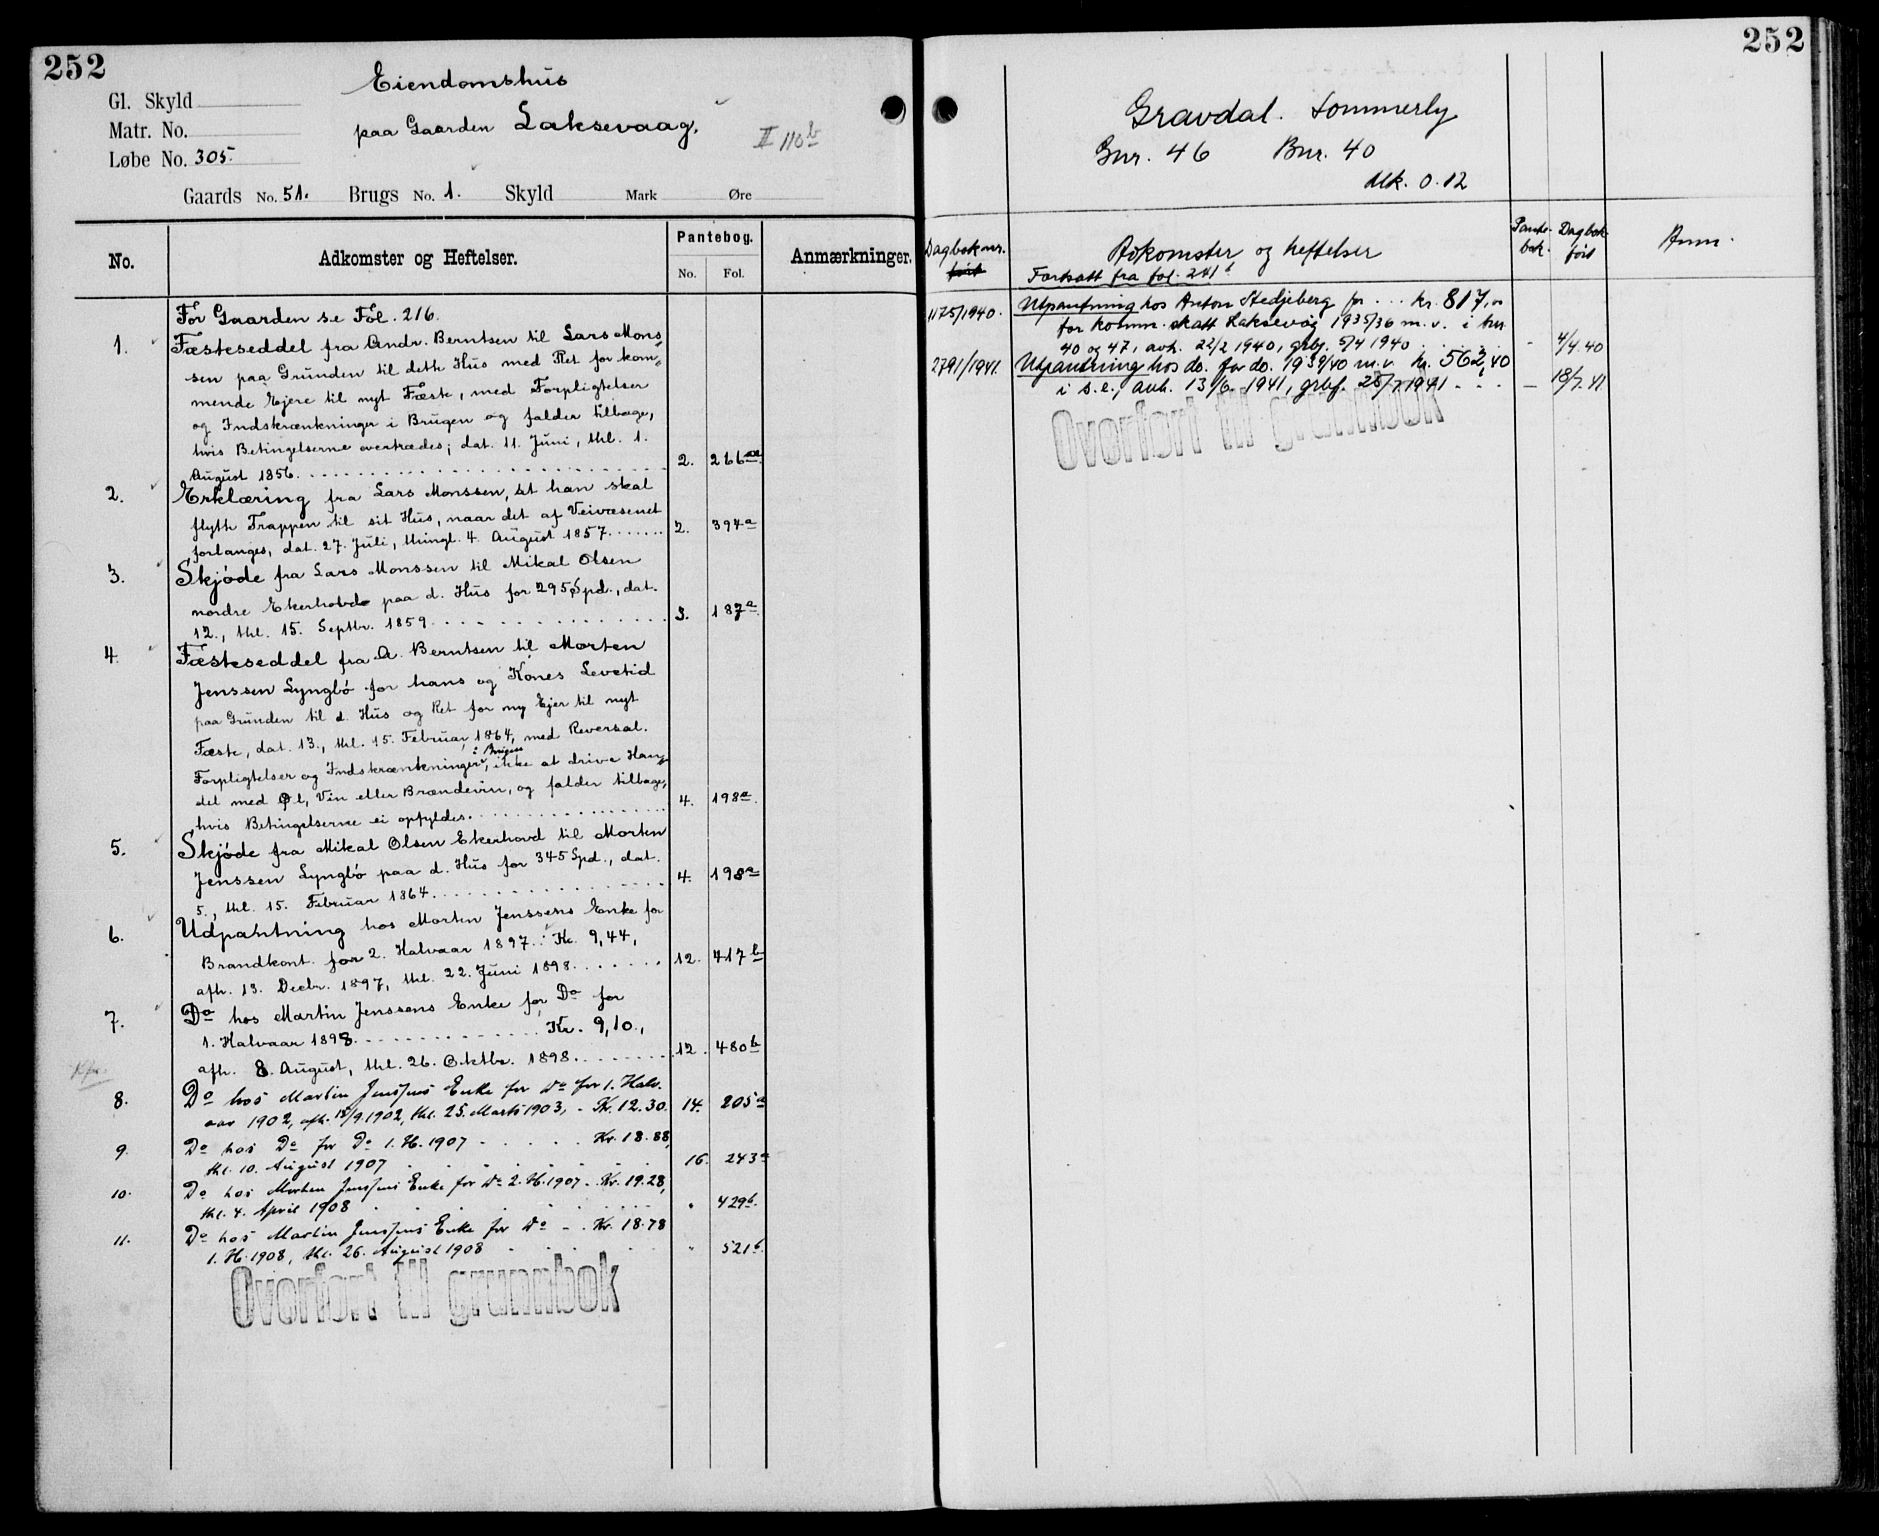 252
Gl. Skyld
Matr. No.
Løbe No. 305.
Eiendomshus
paa Gaarden Laksevaag.
II 110b
Gaards No. 51. Brugs No. 1. Skyld Mark Øre
No.
Adkomster og Heftelser.
Pantebog.
No. Fol.
Anmærkninger.
For Gaarden se Fol. 216.
1. Fæsteseddel fra Andr. Berntsen til Lars Mons-
sen paa Grunden til dette Hus med Ret for kom-
mende Ejere til nyt Fæste, med Forpligtelser
og Indskrænkninger i Brugen og falder tilbage,
hvis Betingelserne overtrædes; dat. 11. Juni, thl. 1.
August 1856. 2. 266a
2. Erklæring fra Lars Monssen, at han skal
flytte Trappen til sit Hus, naar det af Veivæsenet
forlanges, dat. 27. Juli, thingl. 4. August 1857. 2. 394a
3. Skjøde fra Lars Monssen til Mikal Olsen
nordre Ekerhovde paa d. Hus for 295 Spd., dat.
12., thl. 15. Septbr. 1859. 3. 187a
4. Fæsteseddel fra A. Berntsen til Morten
Jenssen Lyngbö for hans og Kones Levetid
paa Grunden til d. Hus og Ret for ny Ejer til nyt
Fæste, dat. 13., thl. 15. Februar 1864, med Reversal.
i Brugen
Forpligtelser og Indskrænkninger, ikke at drive Han-
del med Øl, Vin eller Brændevin, og falder tilbage,
hvis Betingelserne ei opfyldes. 4. 198a
5. Skjøde fra Mikal Olsen Ekerhovd til Morten
Jenssen Lyngbö paa d. Hus for 345 Spd., dat.
5., thl. 15. Februar 1864. 4. 198a
6. Udpantning hos Morten Jenssens Enke for
Brandkont. for 2. Halvaar 1897.. Kr. 9,44,
afh. 13. Decbr. 1897, thl. 22. Juni 1898. 12. 417b
7. Do hos Martin Jenssens Enke for Do for
1. Halvaar 1898. Kr. 9,10.,
afh. 8. August, thl. 26. Oktbr. 1898. 12. 480b
8. Do hos Martin Jenssens Enke for Do for 1. Halv-
aar 1902, afh. 15/9 1902, thl. 25. Marts 1903, - Kr. 12.30. 14. 205a
9. Do hos Do for Do 1. H. 1907 Kr. 18.88,
thl. 10. August 1907 16. 243a
10. Do hos Morten Jenssens Enke for Do 2. H. 1907 - Kr. 19.28,
thl. 4. April 1908 " 429b.
11. Do hos Martin Jenssens Enke for Do - - Kr. 18.78
1. H. 1908, thl. 26. August 1908 " 521b.
Overført til grunnbok
252
Gravdal. Sommerly
Gnr. 46 Bnr. 40
Mk. 0.12
Dagboknr.
Adkomster og heftelser
Pante-
bok.
Dagbok-
ført
Anm.
Fortsatt fra fol. 241b
1175/1940. Utpantning hos Anton Stedjeberg for ... kr. 817,-
for komm. skatt Laksevåg 1935/36 m.v. i bnr.
40 og 47, avh. 22/2 1940, grbf. 5/4 1940 - 4/4.40
2791/1941. Utpantning hos do. for do. 1939/40 m.v. kr. 562,40
i s.e., avh. 13/6 1941, grbf. 25/7 1941 - - - - 18/7.41
Overført til grunnbok